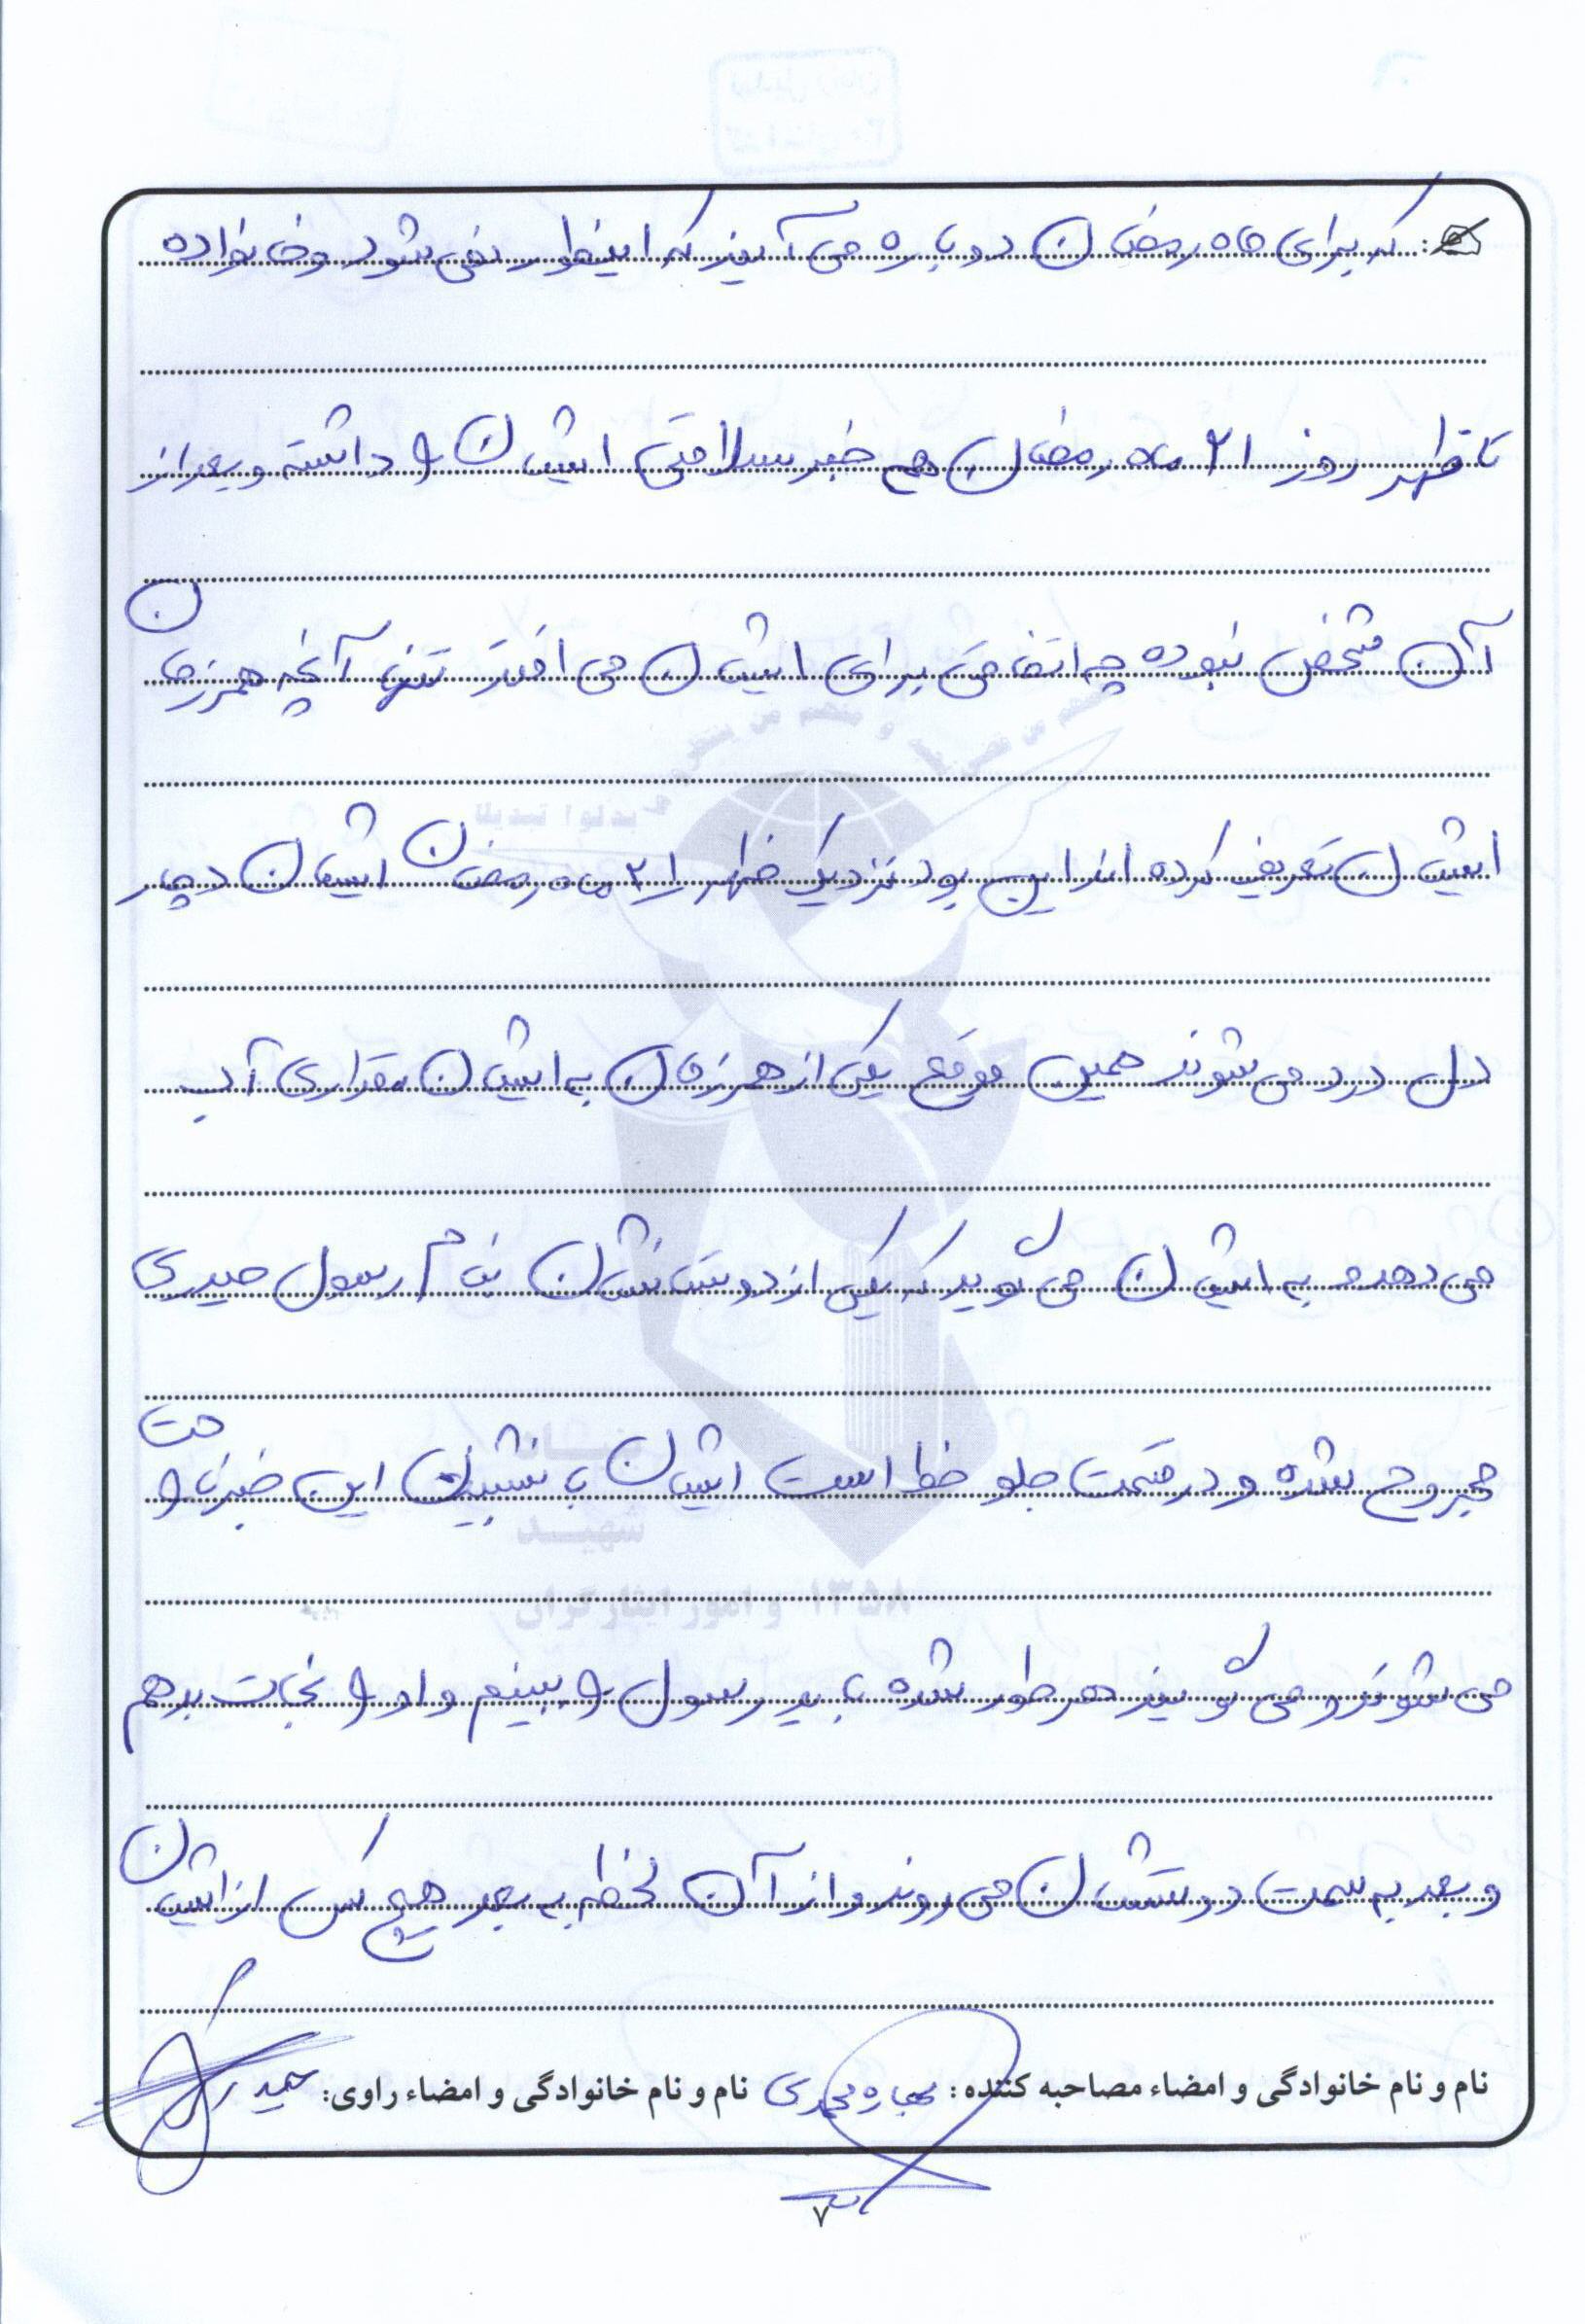 که برای ماه رمضان دوباره می آیند که اینطور نمی شود و خانواده
تا ظهر روز ۲۱ ماه رمضان هم خبر سلامتی ایشان را داشته و بعد از
آن مشخص نبوده چه اتفاقی برای ایشان می افتد تنها آنچه همرزمان
ایشان تعریف کرده اند این بود نزدیک ظهر ۲۱ ماه رمضان ایشان دچار
دل درد می شوند همین موقع یکی از همرزمان به ایشان مقداری آب
می دهد و به ایشان می گوید که یکی از دوستانشان بنام رسول حیدری
مجروح شده و در قسمت جلو خط است ایشان با شنیدن این خبر ناراحت
می شوند و می گویند هر طور شده باید رسول را ببینم و او را نجات بدهم
و بعد به سمت دوستشان می روند و از آن لحظه به بعد هیچ کس از ایشان
نام و نام خانوادگی و امضاء مصاحبه کننده: بهاره محمدی نام و نام خانوادگی و امضاء راوی:
۷